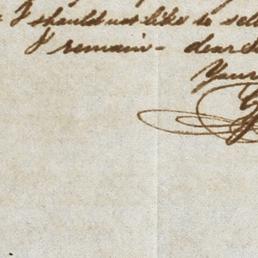 I should not like to sell
I remain - dear
Your